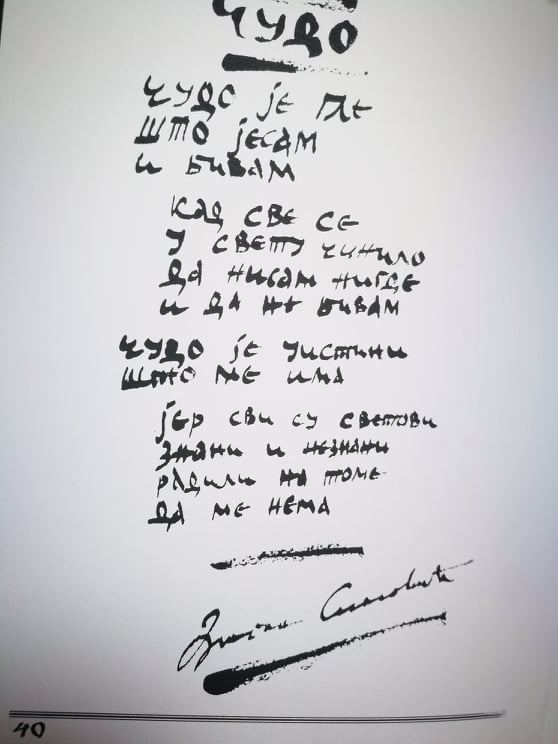 ЧУДО
ЧУДО ЈЕ ГЛЕ
ШТО ЈЕСАМ
И БИВАМ
КАД СВЕ СЕ
У СВЕТУ ЧИНИЛО
ДА НИСАМ НИГДЕ
И ДА НЕ БИВАМ
ЧУДО ЈЕ УИСТИНИ
ШТО МЕ ИМА
ЈЕР СВИ СУ СВЕТОВИ
ЗНАНИ И НЕЗНАНИ
РАДИЛИ НА ТОМЕ
ДА МЕ НЕМА
40